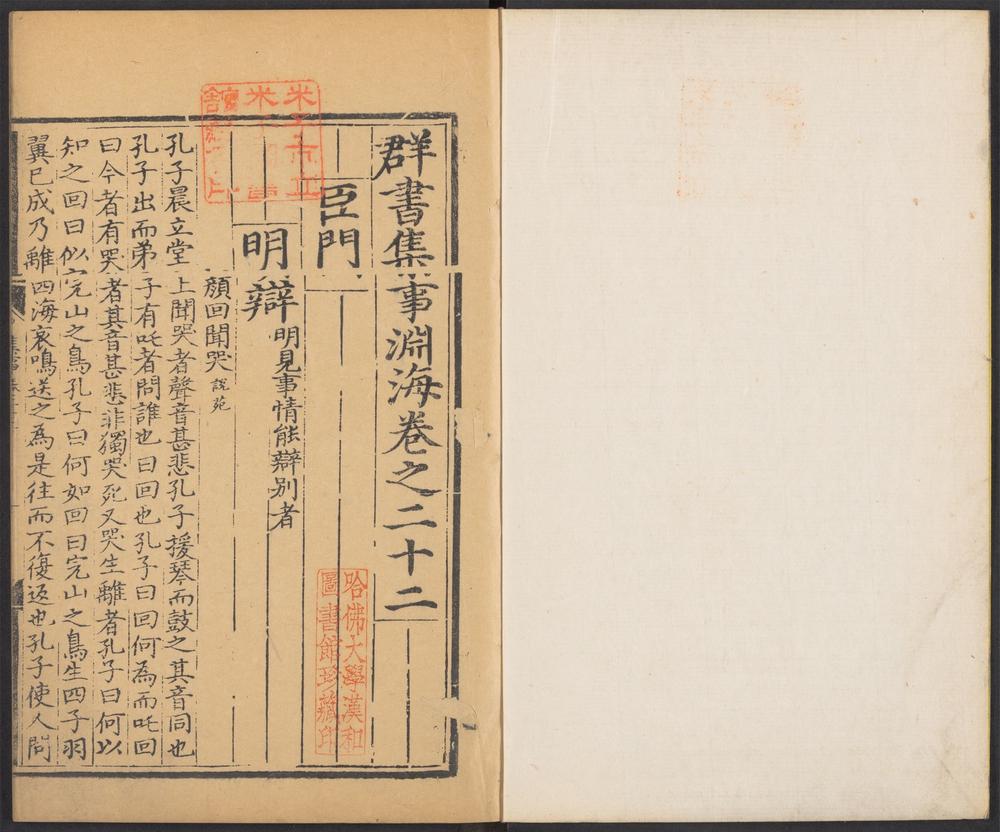 群書集事淵海卷之二十二
臣門
明辯 明見事情能辯别者
顏回聞哭 說苑
孔子晨立堂上聞哭者聲音甚悲孔子援琴而鼓之其音同也
孔子出而弟子有吒者問誰也曰回也孔子曰回何為而吒回
曰今者有哭者其音甚悲非獨哭死又哭生離者孔子曰何以
知之回曰似完山之鳥孔子曰何如回曰完山之鳥生四子羽
翼已成乃離四海哀鳴送之為是往而不復返也孔子使人問
哈佛大學漢和
圖書館珍藏印